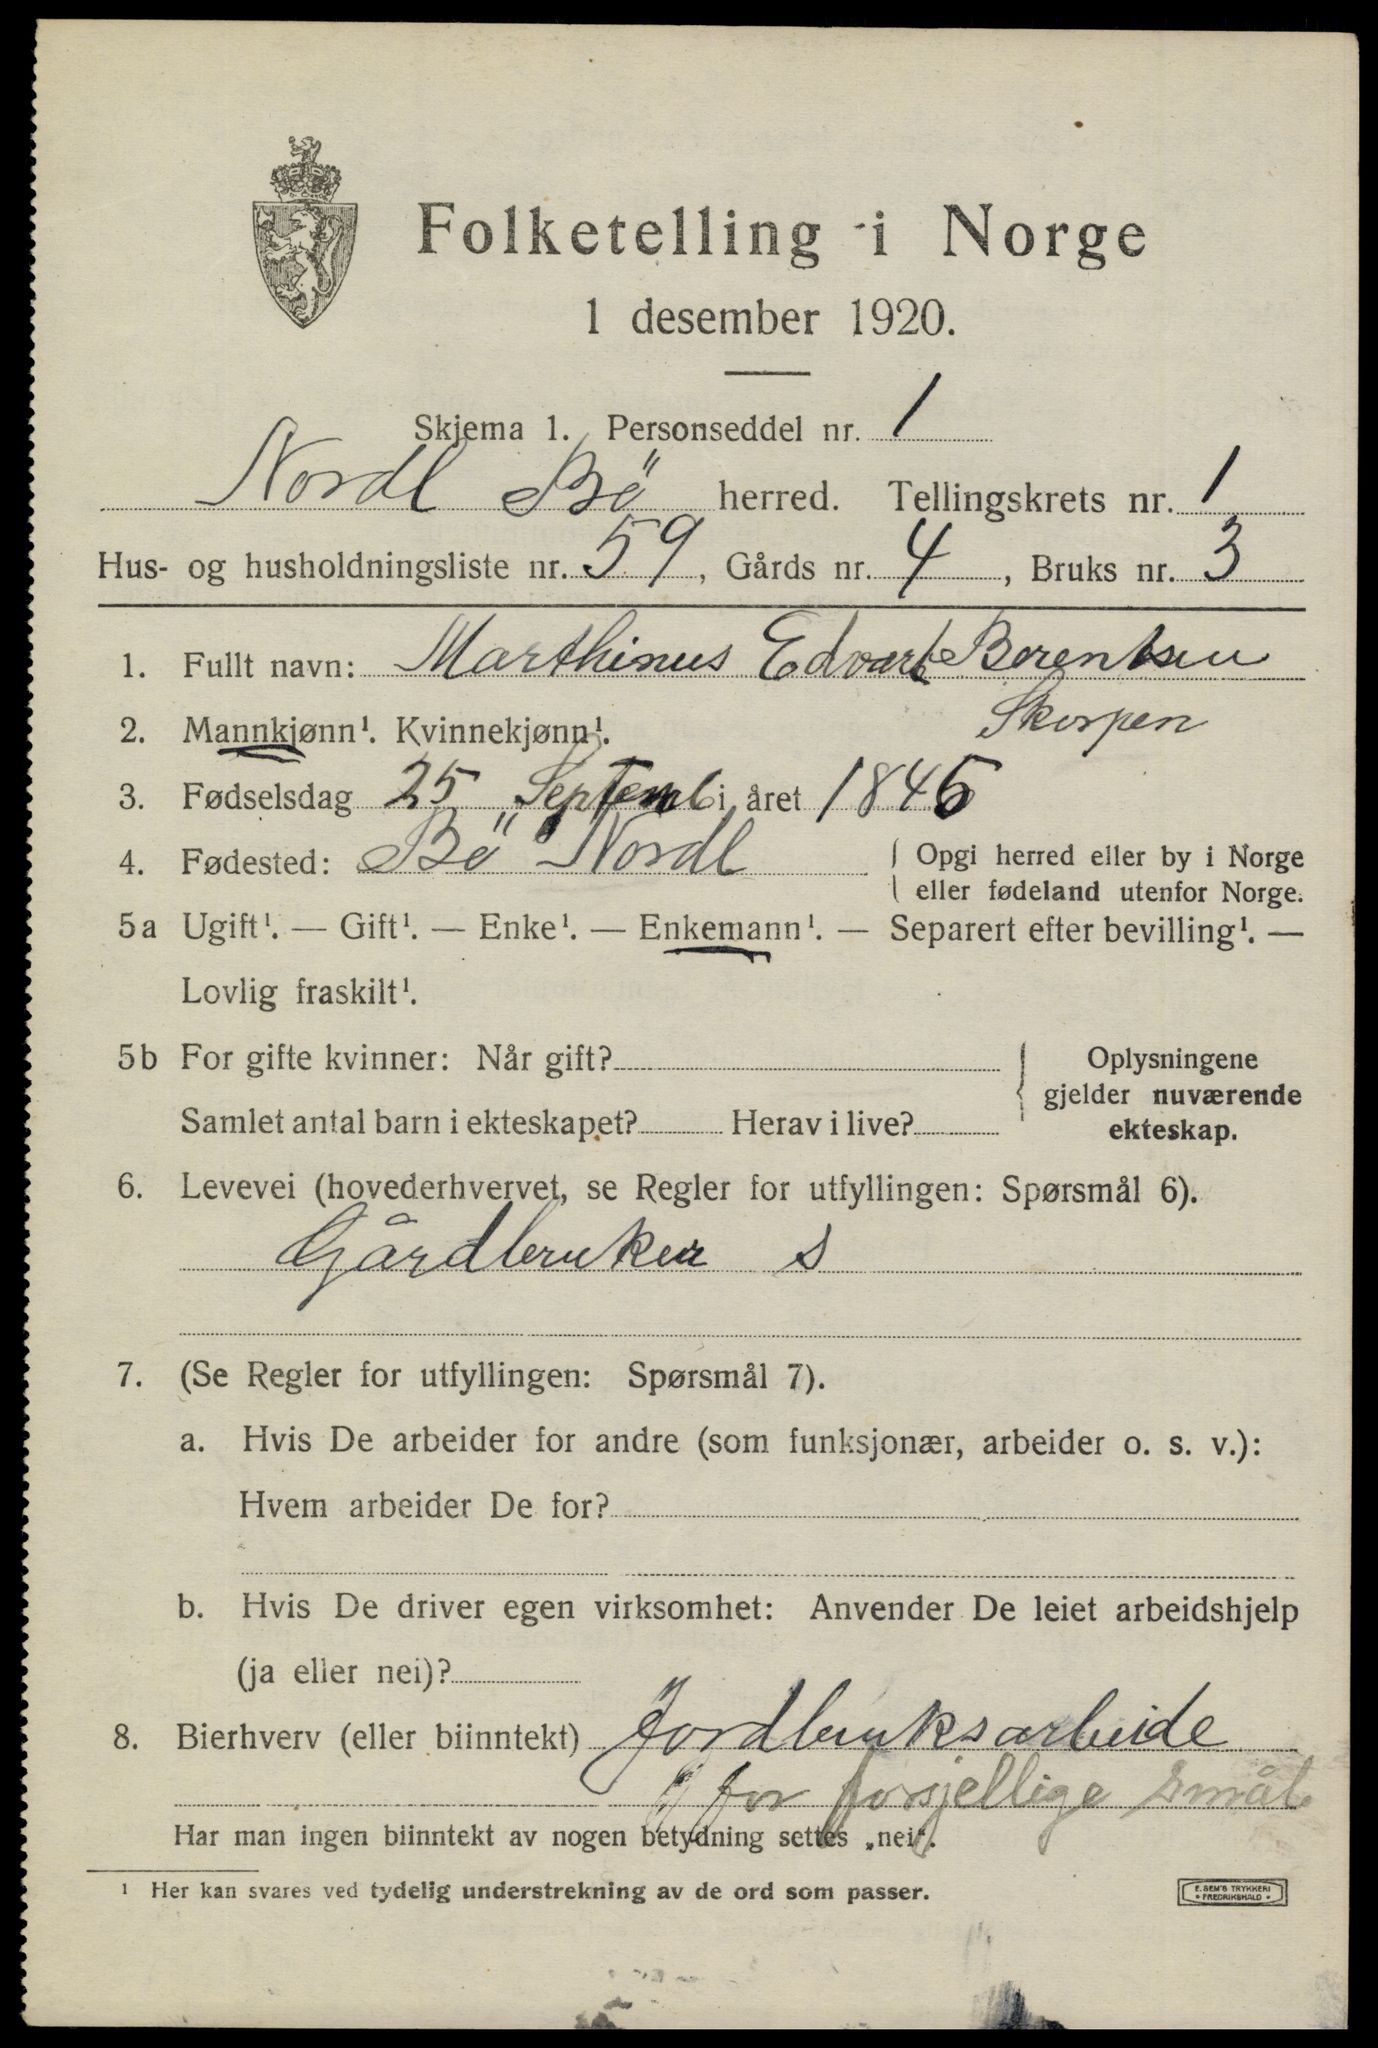 Folketelling i Norge
1 desember 1920.
Skjema 1. Personseddel nr. 1
Nordl Bö herred. Tellingskrets nr. 1
Hus- og husholdningsliste nr. 59, Gårds nr. 4, Bruks nr. 3
1. Fullt navn: Marthinus Edvart Berentsen
Skorpen
2. Mannkjønn¹. Kvinnekjønn¹.
3. Fødselsdag 25 Septemb i året 1846
4. Fødested: Bö Nordl { Opgi herred eller by i Norge
eller fødeland utenfor Norge.
5a Ugift¹. — Gift¹. — Enke¹. — Enkemann¹. — Separert efter bevilling¹. —
Lovlig fraskilt¹.
5b For gifte kvinner: Når gift? { Oplysningene
gjelder nuværende
Samlet antal barn i ekteskapet? Herav i live? ekteskap.
6. Levevei (hovederhvervet, se Regler for utfyllingen: Spørsmål 6).
Gårdbruker s
7. (Se Regler for utfyllingen: Spørsmål 7).
a. Hvis De arbeider for andre (som funksjonær, arbeider o. s. v.):
Hvem arbeider De for?
b. Hvis De driver egen virksomhet: Anvender De leiet arbeidshjelp
(ja eller nei)?
8. Bierhverv (eller biinntekt) Jordbruksarbeide
for forsjellige småb
Har man ingen biinntekt av nogen betydning settes „nei“.
¹ Her kan svares ved tydelig understrekning av de ord som passer.
E. SEM'S TRYKKERI
• FREDRIKSHALD •